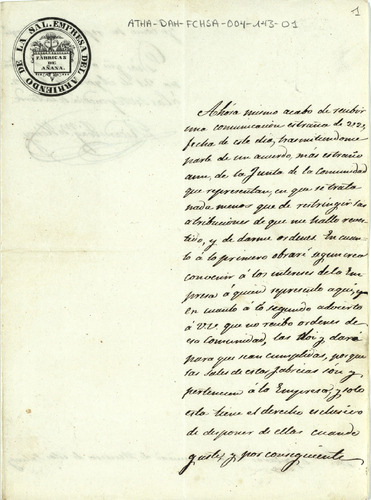 1
ATHA-DAH-FCHSA-004-143-01
EMPRESA DEL ARRIENDO DE LA SAL.
FÁBRICAS
DE
AÑANA.
Ahora mismo acabo de recibir
una comunicación estraña de VV,
fecha de este dia, trasmitiendome
parte de un acuerdo, más estraño
aun, de la Junta de la comunidad
que representan, en que se trata
nada menos que de restringir las
atribuciones de que me hallo reves-
tido, y de darme ordenes. En cuan-
to á lo primero obraré segun crea
convenir á los intereses de la Em-
presa á quien represento aqui, y
en cuanto á lo segundo advierto
á VV. que no recibo ordenes de
esa Comunidad, las doi y daré
para que sean cumplidas, porque
las Sales de estas fabricas són y
pertenecen á la Empresa, y solo
esta tiene el derecho esclusivo
de disponer de ellas cuando
guste, y por consiguiente